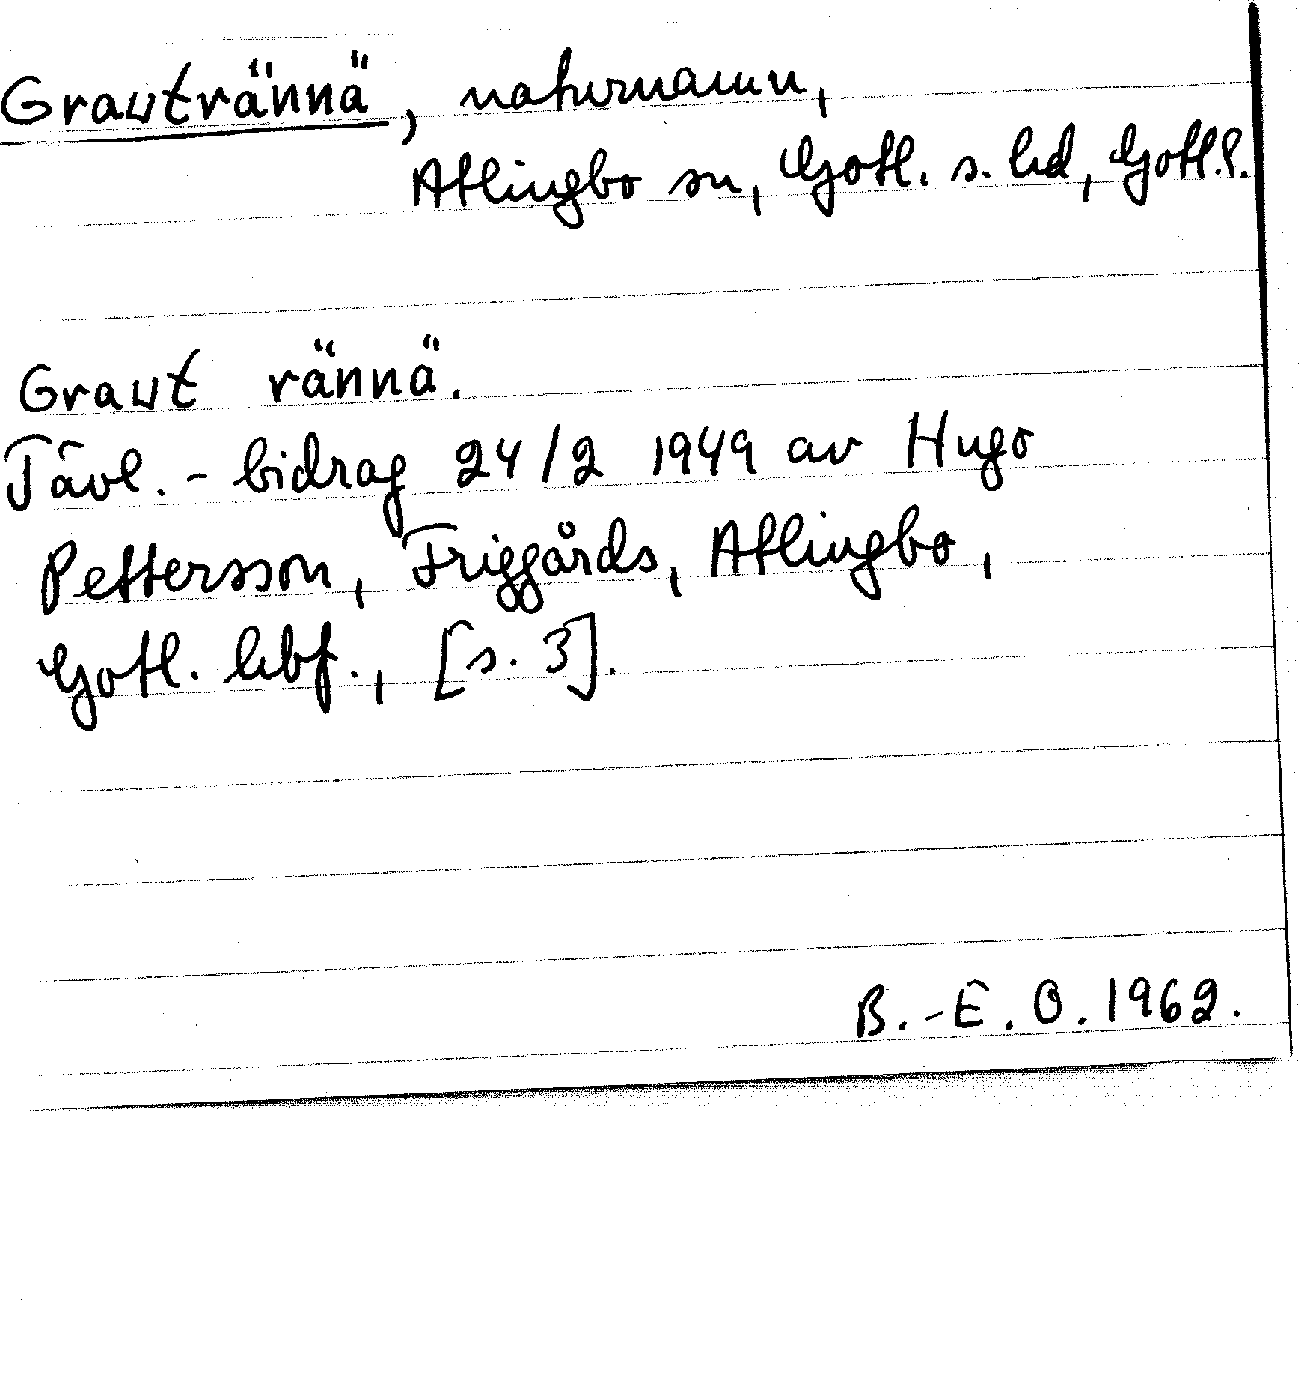 Grautrännä, naturnamn,
Atlingbo sn, Gotl. s. hd, Gotl. l.
Graut rännä.
Tävl.-bidrag 24/2 1949 av Hugo
Pettersson, Friggårds, Atlingbo,
Gotl. hbf., [s. 3].
B.-E. O. 1962.